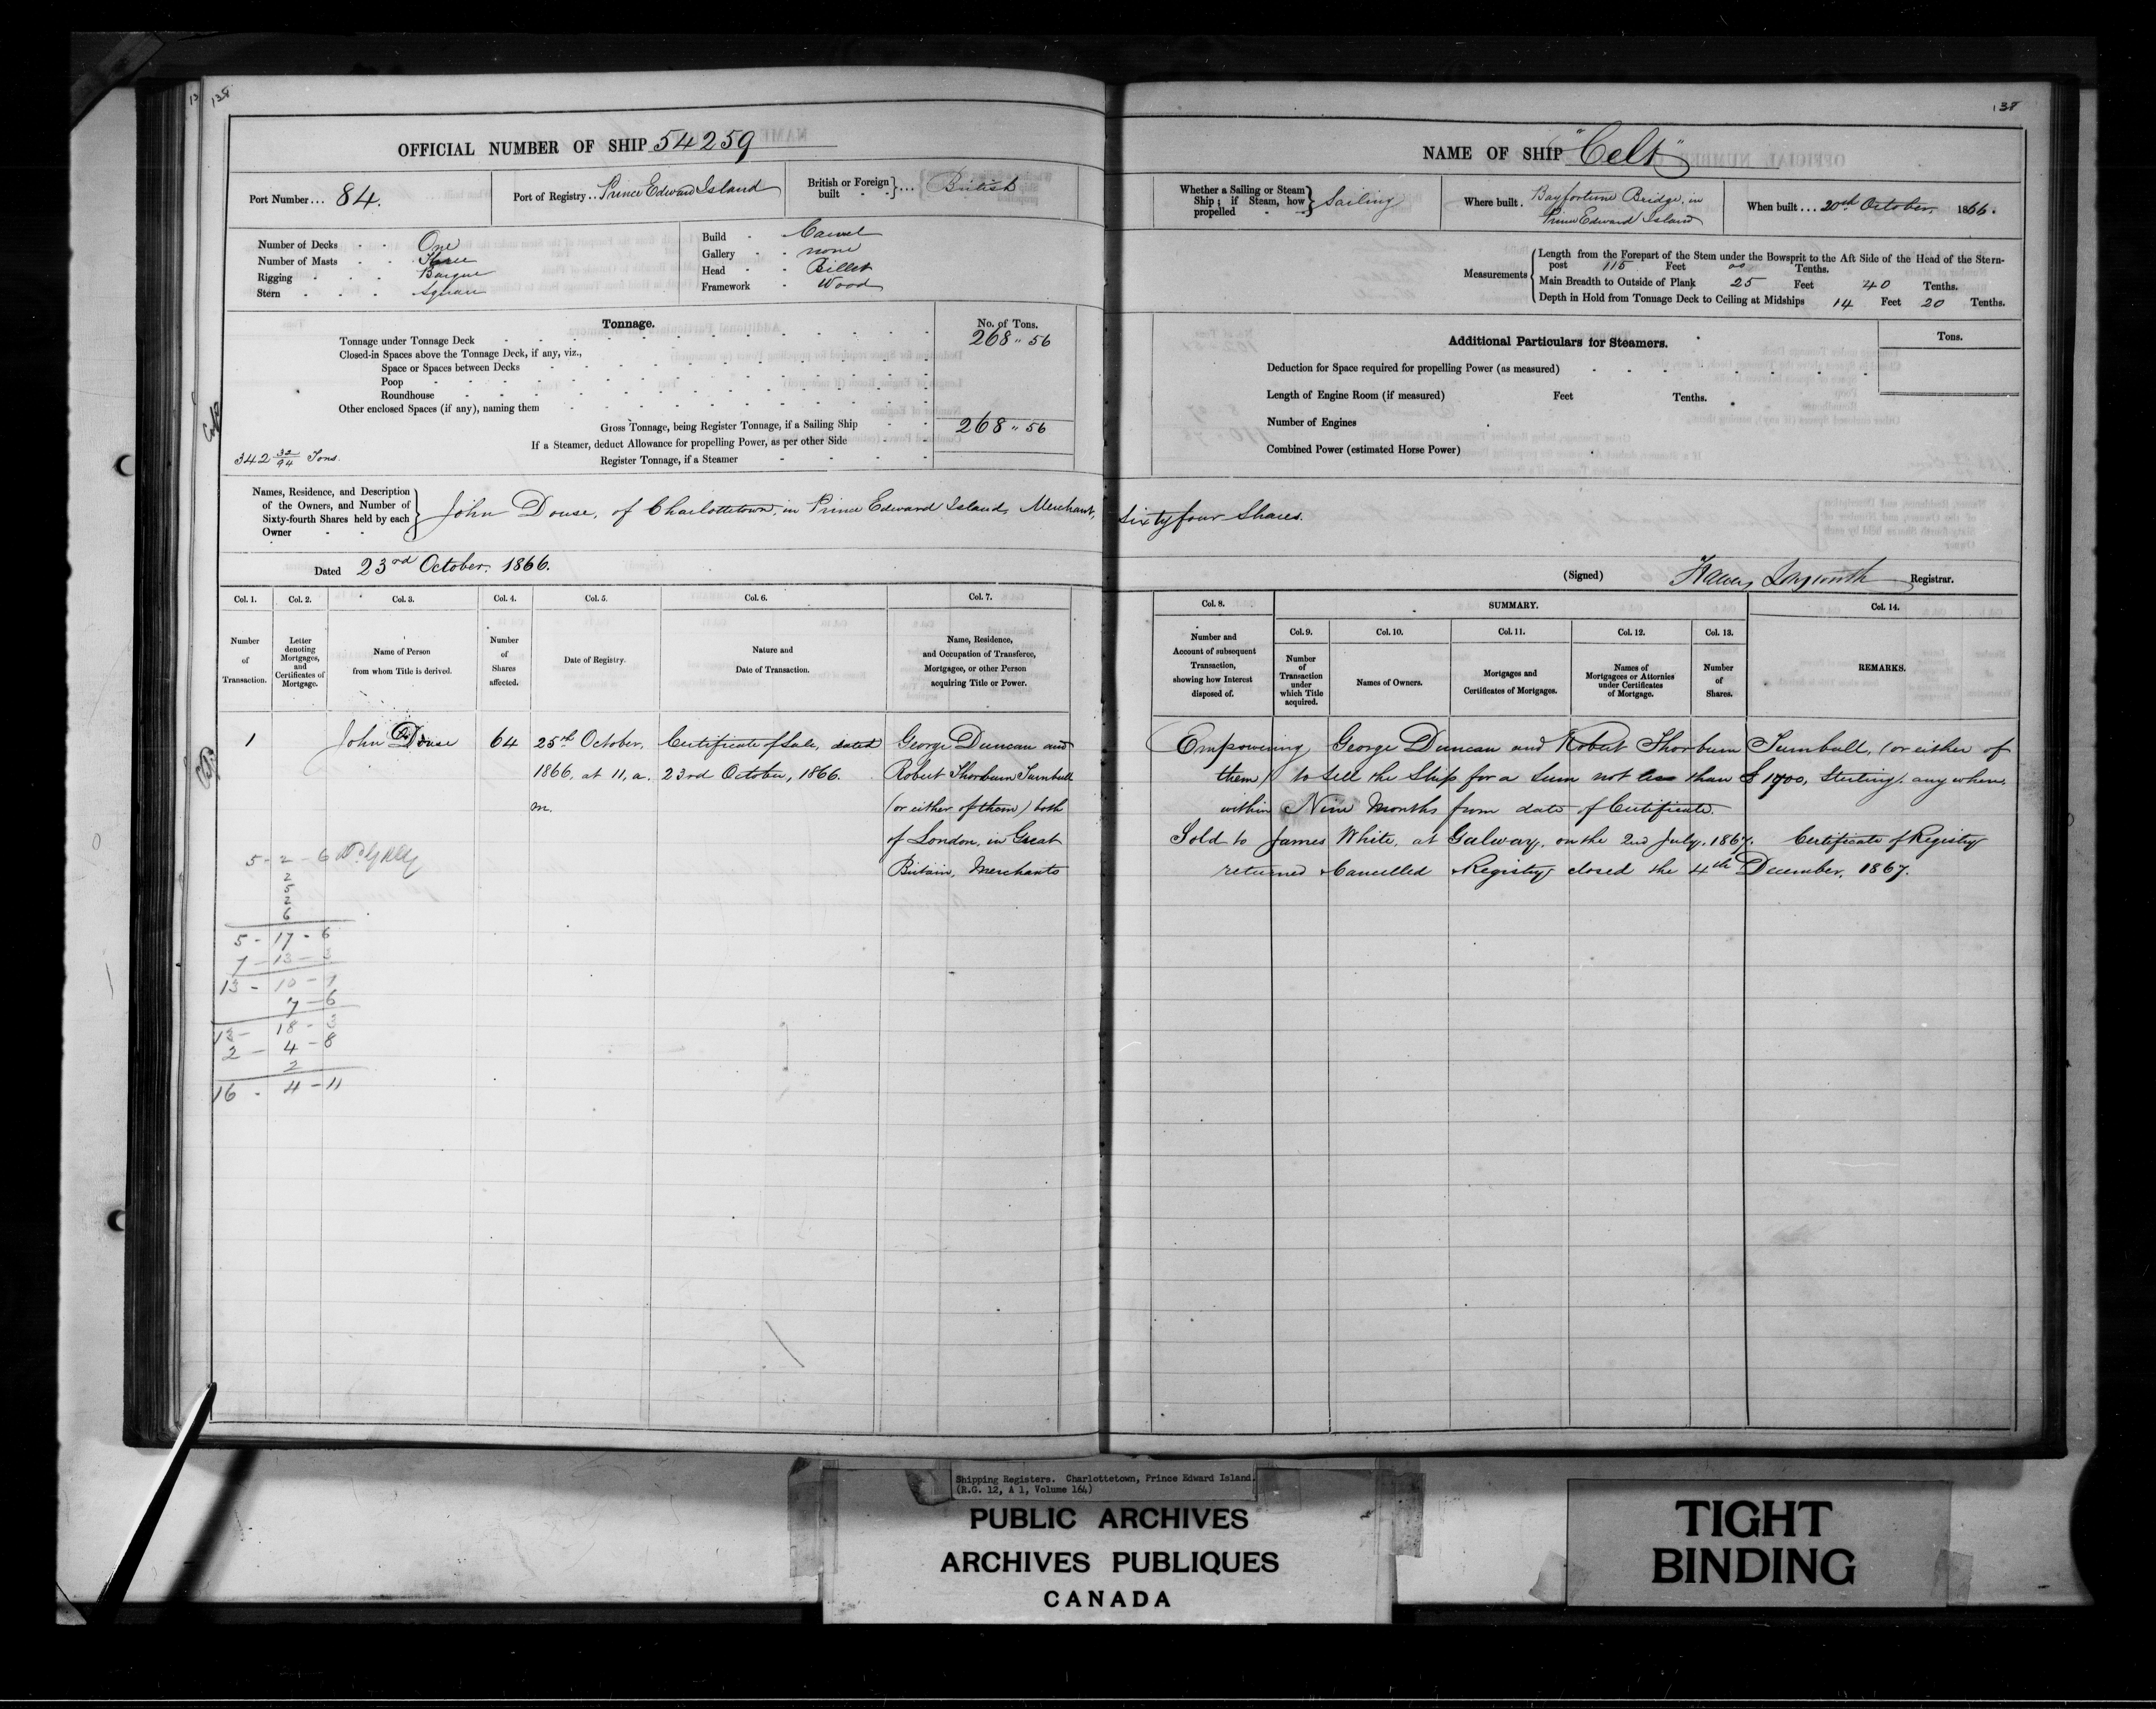 138
OFFICIAL NUMBER OF SHIP 54259
Port Number... 84.
Port of Registry.. Prince Edward Island
British or Foreign built }... British
Number of Decks One
Number of Masts Three
Rigging Barque
Stern Square
Build Carvel
Gallery none
Head Billet
Framework Wood
Tonnage.
No. of Tons.
Tonnage under Tonnage Deck 268 " 56
Closed-in Spaces above the Tonnage Deck, if any, viz.,
Space or Spaces between Decks
Poop
Roundhouse
Other enclosed Spaces (if any), naming them
Gross Tonnage, being Register Tonnage, if a Sailing Ship 268 " 56
If a Steamer, deduct Allowance for propelling Power, as per other Side
342 32/94 Tons.
Register Tonnage, if a Steamer
Names, Residence, and Description
of the Owners, and Number of
Sixty-fourth Shares held by each
Owner
John Douse, of Charlottetown, in Prince Edward Island, Merchant,
Dated 23rd October, 1866.
Col. 1. Col. 2. Col. 3. Col. 4. Col. 5. Col. 6. Col. 7.
Number of Transaction.
Letter denoting Mortgages, and Certificates of Mortgage.
Name of Person from whom Title is derived.
Number of Shares affected.
Date of Registry.
Nature and Date of Transaction.
Name, Residence, and Occupation of Transferee, Mortgagee, or other Person acquiring Title or Power.
1 John Douse 64 25th October, Certificate of Sale, dated George Duncan and
1866, at 11, a. 23rd October, 1866. Robert Thorburn Turnbull
m. (or either of them) both
of London, in Great
Britain, Merchants
5 - 2 - 6
2
5
2
6
5 - 17 - 6
7 - 13 - 3
13 - 10 - 9
7 - 6
13 - 18 - 3
2 - 4 - 8
2
16 - 4 - 11
138
NAME OF SHIP "Celt"
Whether a Sailing or Steam Ship; if Steam, how propelled } Sailing
Where built. Bayfortune Bridge, in
Prince Edward Island
When built... 20th October, 1866.
Measurements
Length from the Forepart of the Stem under the Bowsprit to the Aft Side of the Head of the Stern-
post 115 Feet 00 Tenths.
Main Breadth to Outside of Plank 25 Feet 40 Tenths.
Depth in Hold from Tonnage Deck to Ceiling at Midships 14 Feet 20 Tenths.
Additional Particulars for Steamers.
Tons.
Deduction for Space required for propelling Power (as measured)
Length of Engine Room (if measured) Feet Tenths.
Number of Engines
Combined Power (estimated Horse Power)
Sixty four Shares.
(Signed) Longworth Registrar.
Col. 8. SUMMARY. Col. 14.
Col. 9. Col. 10. Col. 11. Col. 12. Col. 13.
Number and Account of subsequent Transaction, showing how Interest disposed of.
Number of Transaction under which Title acquired.
Names of Owners.
Mortgages and Certificates of Mortgages.
Names of Mortgagees or Attornies under Certificates of Mortgage.
Number of Shares.
REMARKS.
Empowering George Duncan and Robert Thorburn Turnbull, (or either of
them) to sell the Ship for a Sum not less than £ 1700, Sterling, any where,
within Nine Months from date of Certificate.
Sold to James White, at Galway, on the 2nd July, 1867. Certificate of Registry
returned Cancelled Registry closed the 4th December, 1867.
Shipping Registers. Charlottetown, Prince Edward Island.
(R.G. 12, A 1, Volume 164)
PUBLIC ARCHIVES
ARCHIVES PUBLIQUES
CANADA
TIGHT
BINDING